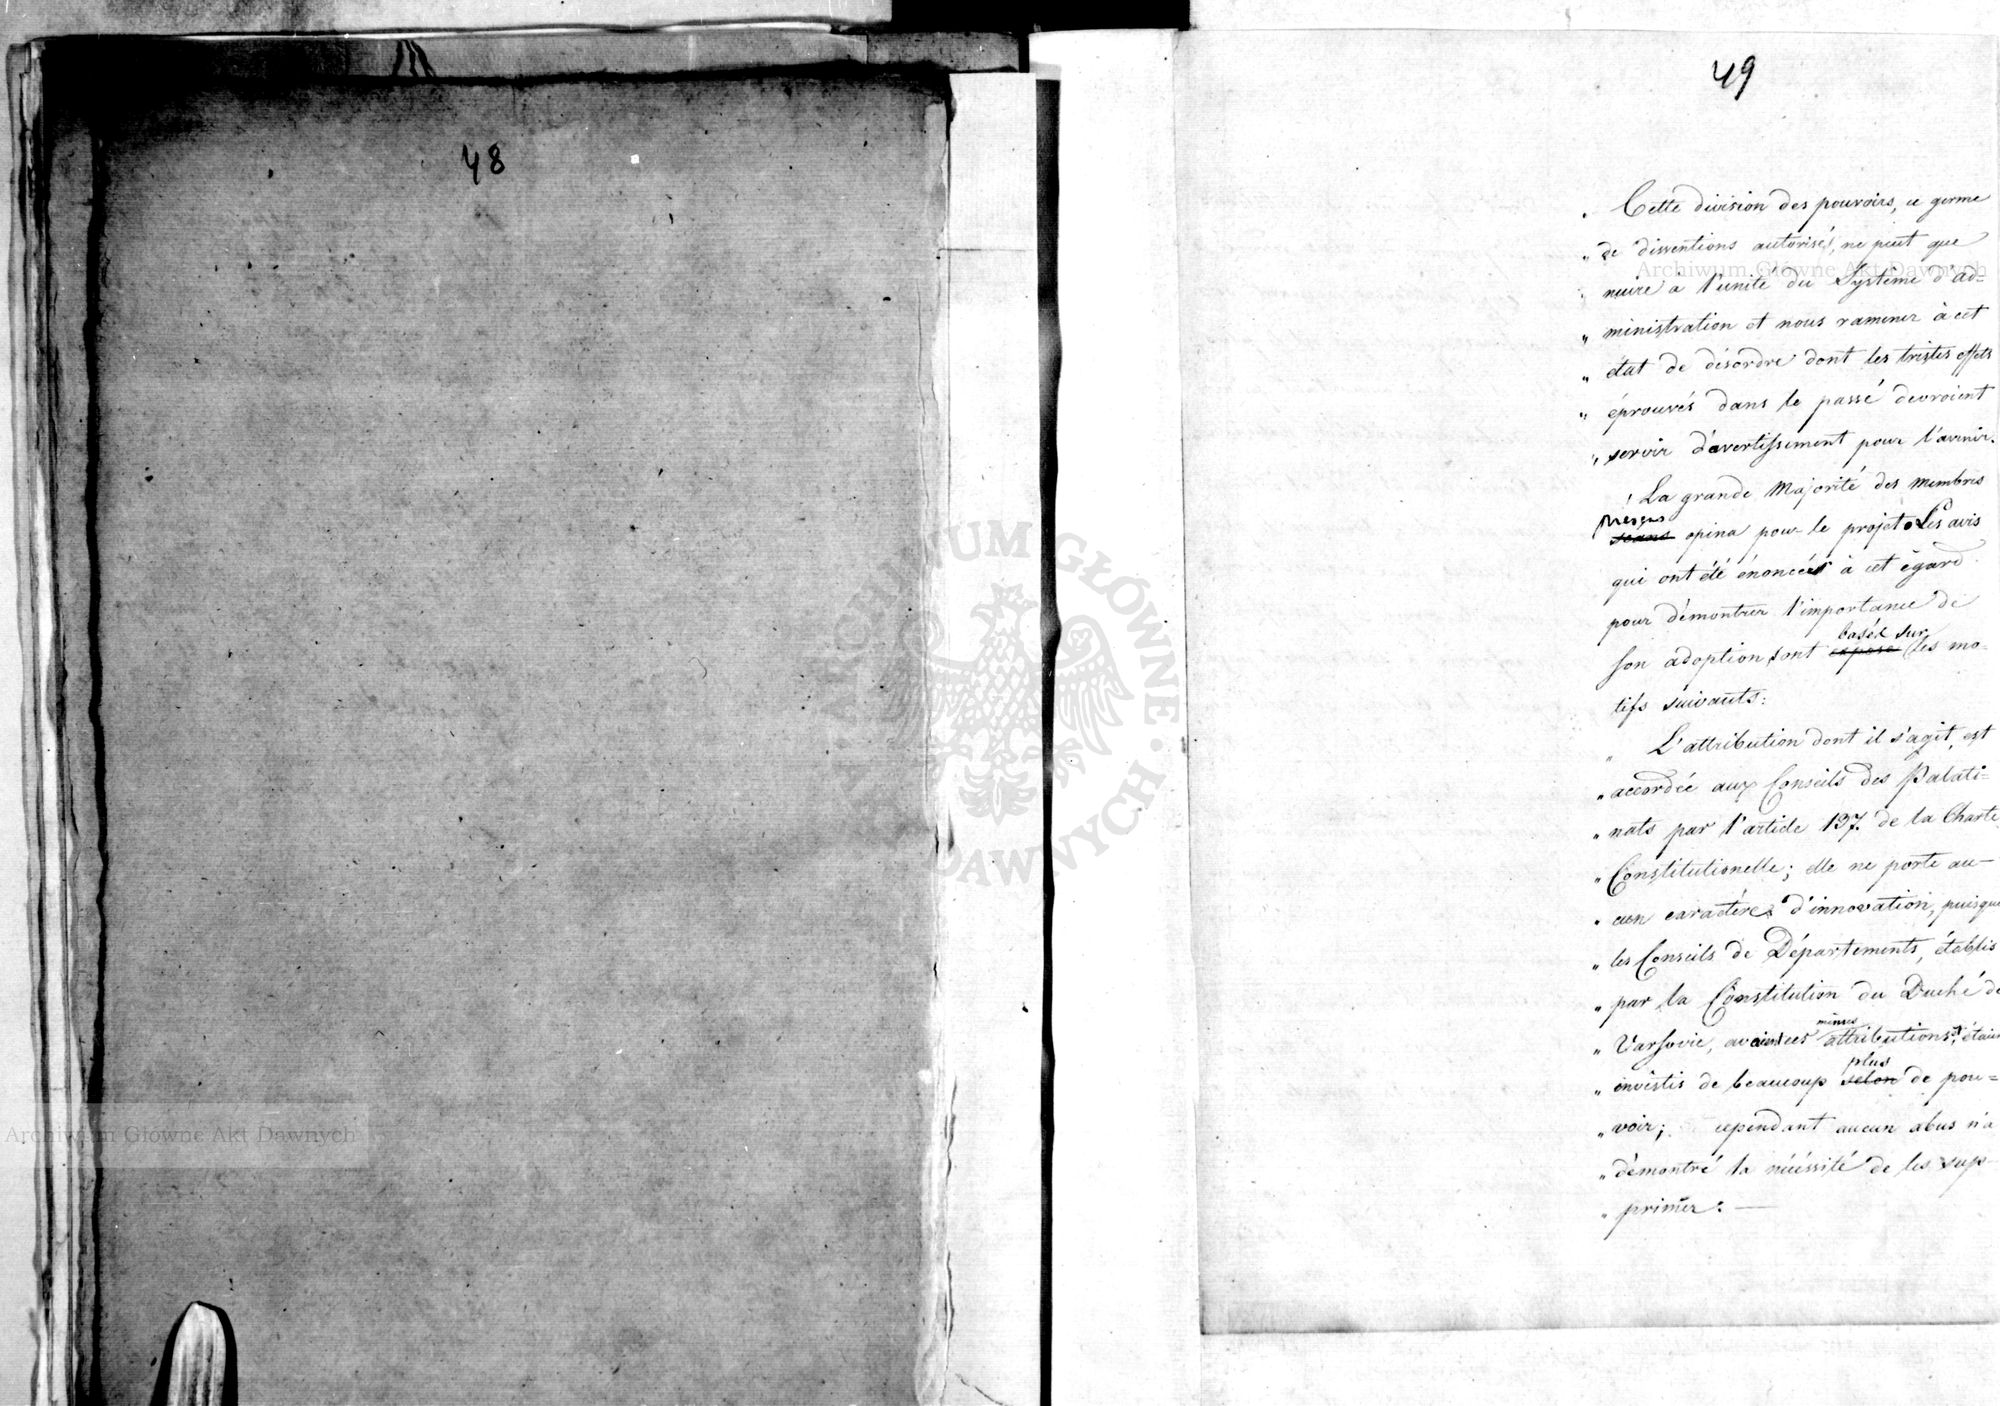 48
49
Cette division des pouvoirs, ce germe
" de dissentions autorisés, ne peut que
" nuire a l'unité du Système d'ad-
" ministration et nous ramener à cet
" état de désordre dont les tristes effets
" éprouvés dans le passé devroient
" servir d'avertissement pour l'avenir.
La grande Majorité des membres
présens
opina pour le projet. Les avis
qui ont été énoncés à cet égard
pour démontrer l'importance de
basés sur
son adoption sont exposé les mo-
tifs suivants:
" L'attribution dont il s'agit, est
" accordée aux Conseils des Palati=
" nats par l'article 137. de la Charte
" Constitutionelle; elle ne porte au-
" cun caractère d'innovation, puisque
" les Conseils de Départements, établis
" par la Constitution du Duché de
mêmes
" Varsovie, avaient ces attributions et étaient
plus
" investis de beaucoup selon de pou=
" voir; cependant aucun abus n'a
" démontré la nécessité de les sup-
" primer. —
Archiwum Główne Akt Dawnych
Archiwum Główne Akt Dawnych
ARCHIWUM GŁÓWNE AKT DAWNYCH